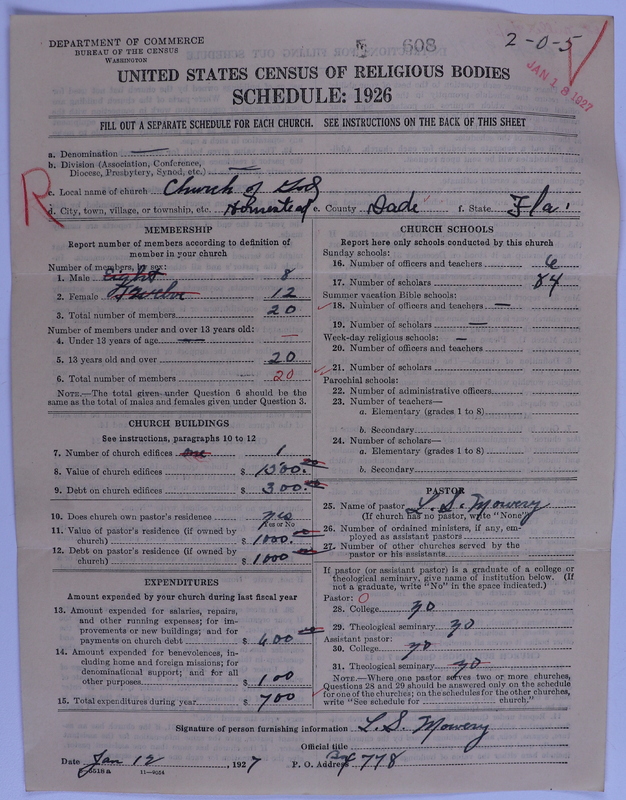 DEPARTMENT OF COMMERCE
BUREAU OF THE CENSUS
WASHINGTON
608
2-0-5
JAN 18 1927
UNITED STATES CENSUS OF RELIGIOUS BODIES
SCHEDULE: 1926
FILL OUT A SEPARATE SCHEDULE FOR EACH CHURCH. SEE INSTRUCTIONS ON THE BACK OF THIS SHEET
a. Denomination —
b. Division (Association, Conference,
Diocese, Presbytery, Synod, etc.) —
R
c. Local name of church Church of God
d. City, town, village, or township, etc. Homestead e. County Dade f. State Fla.
MEMBERSHIP
Report number of members according to definition of
member in your church
Number of members, by sex:
1. Male Eight 8
2. Female Twelve 12
3. Total number of members 20
Number of members under and over 13 years old:
4. Under 13 years of age — —
5. 13 years old and over 20
6. Total number of members 20
NOTE.—The total given under Question 6 should be
the same as the total of males and females given under Question 3.
CHURCH BUILDINGS
See instructions, paragraphs 10 to 12
7. Number of church edifices one 1
8. Value of church edifices $ 1500.00
9. Debt on church edifices $ 300.00
10. Does church own pastor's residence yes
Yes or No
11. Value of pastor's residence (if owned by
church) $ 1000.00
12. Debt on pastor's residence (if owned by
church) $ 1000
EXPENDITURES
Amount expended by your church during last fiscal year
13. Amount expended for salaries, repairs,
and other running expenses; for im-
provements or new buildings; and for
payments on church debt $ 600
14. Amount expended for benevolences, in-
cluding home and foreign missions; for
denominational support; and for all
other purposes $ 100
15. Total expenditures during year $ 700
CHURCH SCHOOLS
Report here only schools conducted by this church
Sunday schools:
16. Number of officers and teachers 6
17. Number of scholars 84
Summer vacation Bible schools:
18. Number of officers and teachers —
19. Number of scholars —
Week-day religious schools: —
20. Number of officers and teachers
21. Number of scholars
Parochial schools:
22. Number of administrative officers
23. Number of teachers—
a. Elementary (grades 1 to 8)
b. Secondary
24. Number of scholars—
a. Elementary (grades 1 to 8)
b. Secondary
PASTOR
25. Name of pastor L. S. Mowery
(If church has no pastor, write "None")
26. Number of ordained ministers, if any, em-
ployed as assistant pastors
27. Number of other churches served by the
pastor or his assistants
If pastor (or assistant pastor) is a graduate of a college or
theological seminary, give name of institution below. (If
not a graduate, write "No" in the space indicated.)
Pastor: 0
28. College no
29. Theological seminary no
Assistant pastor:
30. College no
31. Theological seminary no
NOTE.—Where one pastor serves two or more churches,
Questions 28 and 29 should be answered only on the schedule
for one of the churches; on the schedules for the other churches,
write "See schedule for church."
Signature of person furnishing information L. S. Mowery
Official title
Date Jan 12, 1927 P. O. Address Box 778
8518a 11—9064